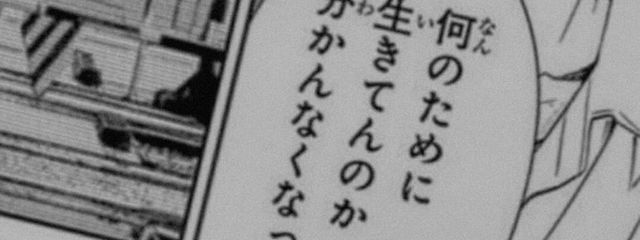 何のために
生きてんのか
分かんなくなっ